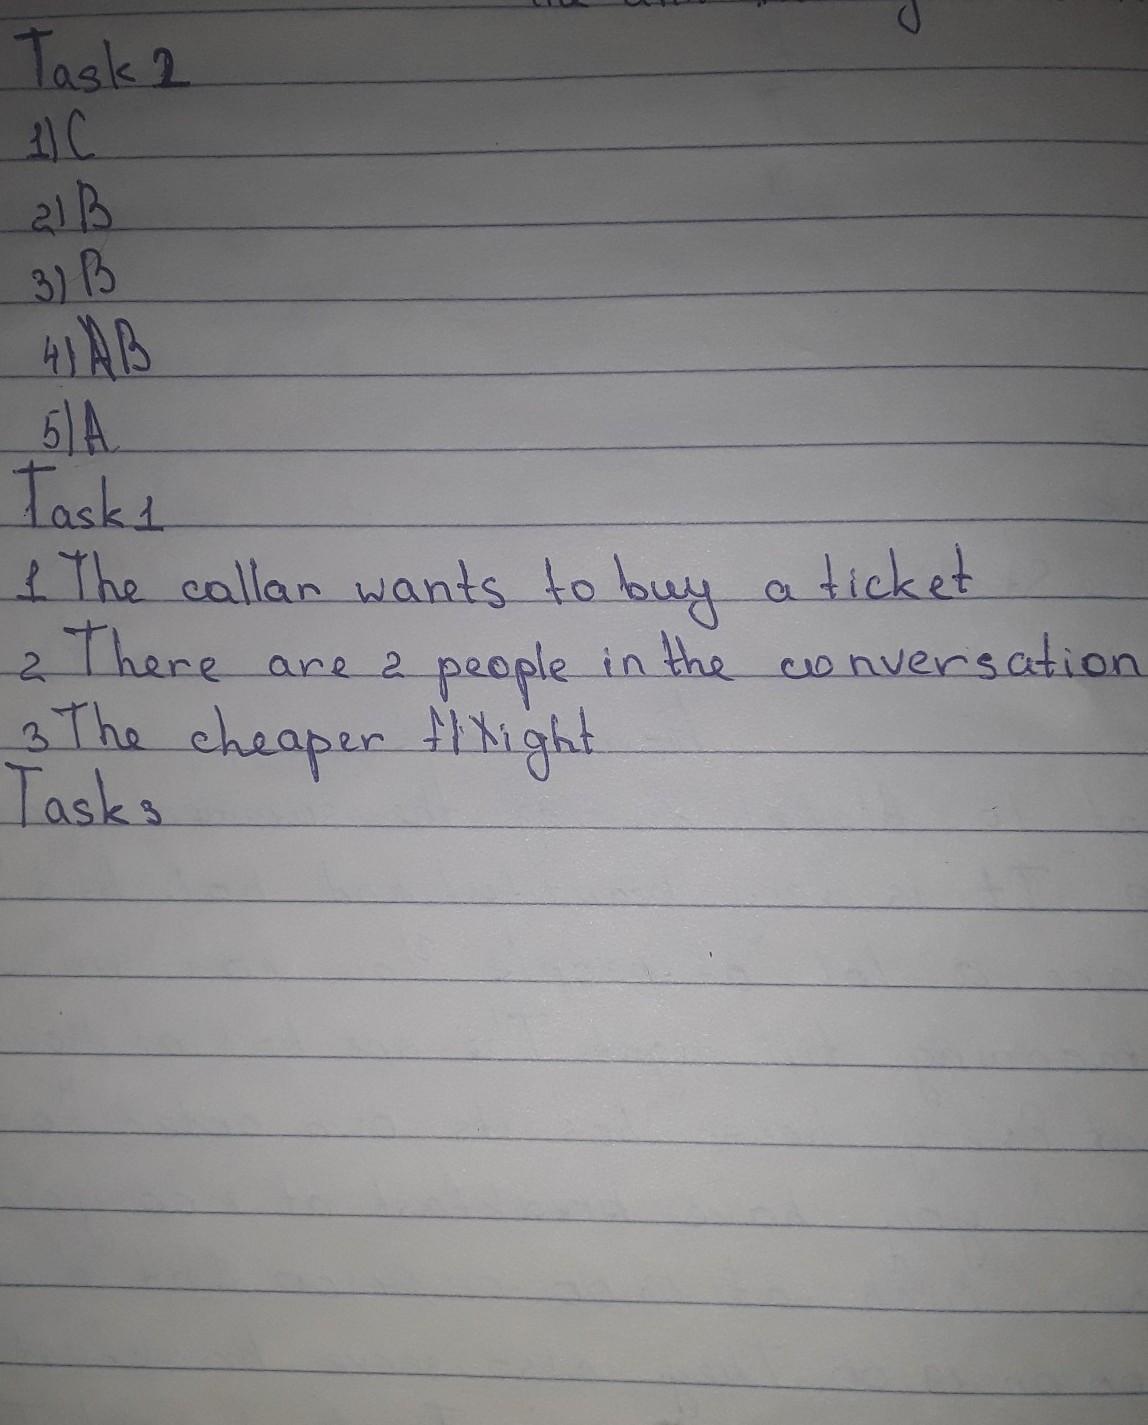 Task 2
1) C
2) B
3) B
4) B
5) A
Task 1
1 The callar wants to buy a ticket
2 There are 2 people in the conversation
3 The cheaper flight
Task 3